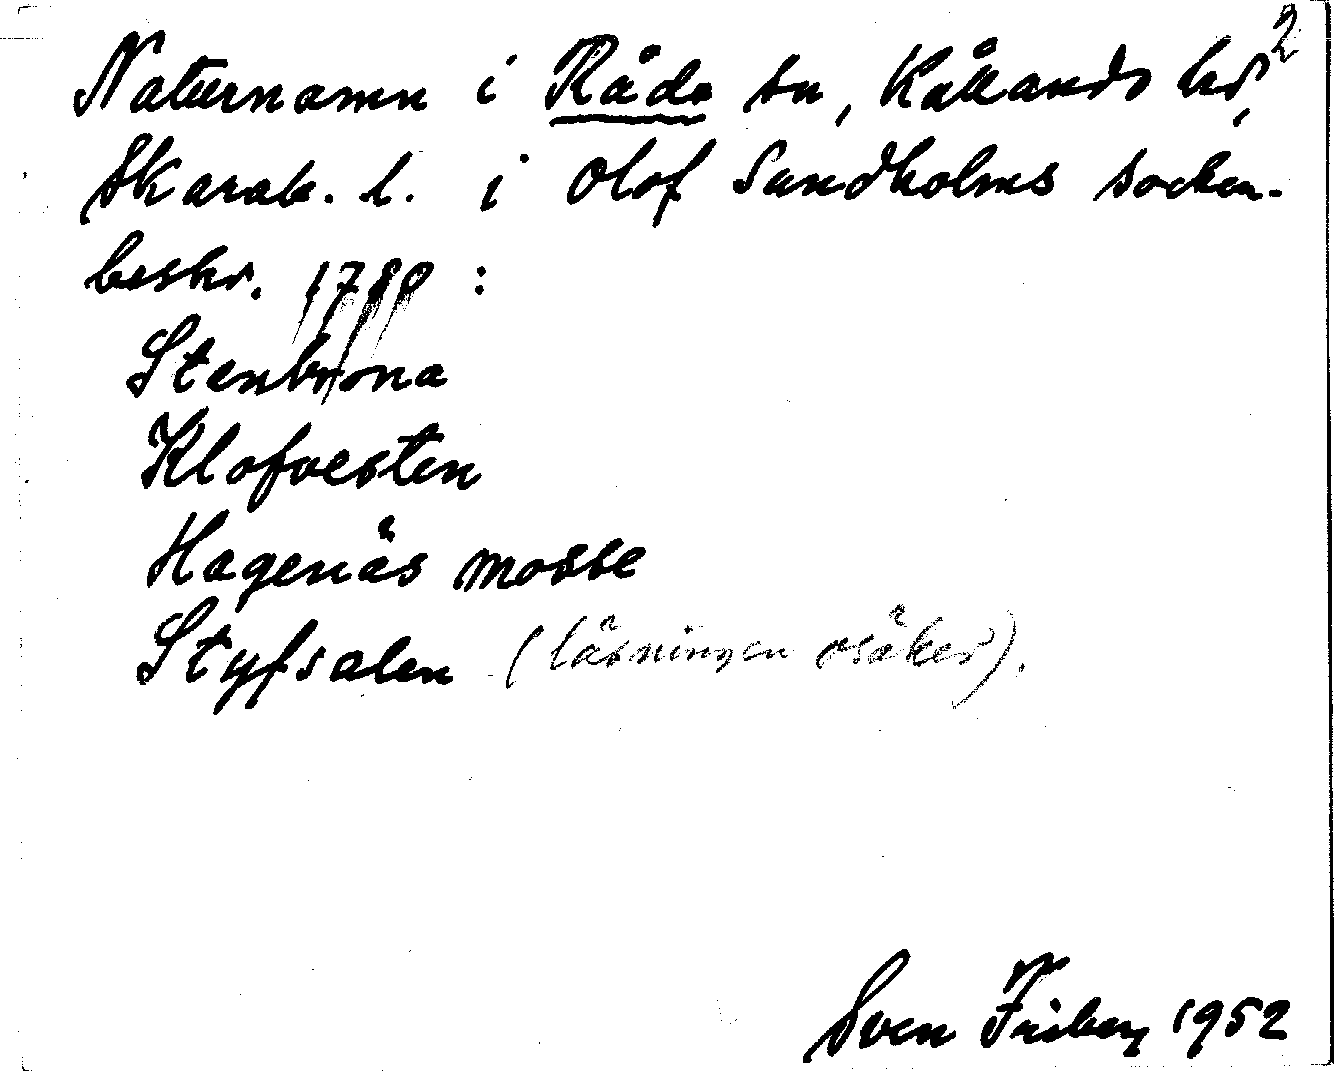 2
Naturnamn i Råda sn, Kållands hd,
Skarab. l. i Olof Sundholms socken-
beskr. 1780 :
Stenbrona
Klofvesten
Hagenäs mosse
Styfsalen (läsningen osäker).
Sven Friberg 1952